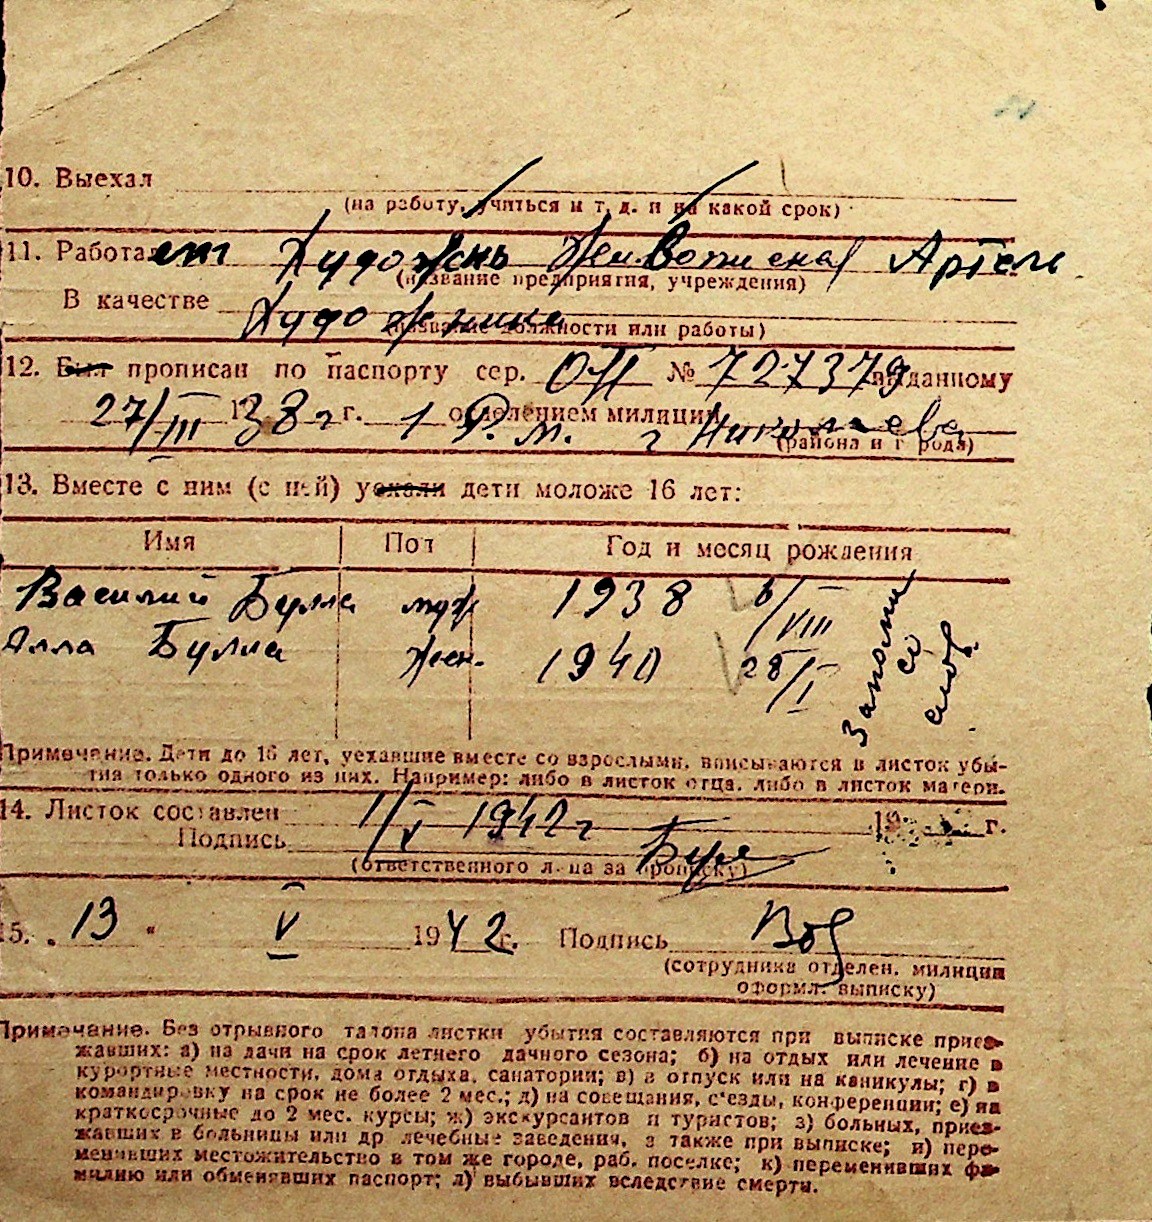 10. Выехал
(на работу, учиться и т. д. и на какой срок)
11. Работает Художень Живописная Артель
(название предприятия, учреждения)
В качестве Художника
(название должности или работы)
12. Был прописан по паспорту сер. ОП № 727379 выданному
27/III 1938 г. г. 1 отделением милиции Р. М. г Николаева
(района и города)
13. Вместе с ним (с ней) уехали дети моложе 16 лет:
Имя Пол Год и месяц рождения
Василий Булла муж 1938 6/VIII
Алла Булла жен. 1940 28/I
Записаны со слов
Примечание. Дети до 16 лет, уехавшие вместе со взрослыми, вписываются в листок убы-
тия только одного из них. Например: либо в листок отца, либо в листок матери.
14. Листок составлен 1/V 1942 г 19 г.
Подпись
(ответственного лица за прописку)
15. „13 “ V 1942 г. Подпись
(сотрудника отделен. милиции
оформл. выписку)
Примечание. Без отрывного талона листки убытия составляются при выписке приез-
жавших: а) на дачи на срок летнего дачного сезона; б) на отдых или лечение в
курортные местности, дома отдыха, санатории; в) в отпуск или на каникулы; г) в
командировку на срок не более 2 мес.; д) на совещания, с'езды, конференции; е) на
краткосрочные до 2 мес. курсы; ж) экскурсантов и туристов; з) больных, приез-
жавших в больницы или др лечебные заведения, а также при выписке; и) пере-
менивших местожительство в том же городе, раб. поселке; к) переменивших фа-
милию или обменявших паспорт; л) выбывших вследствие смерти.